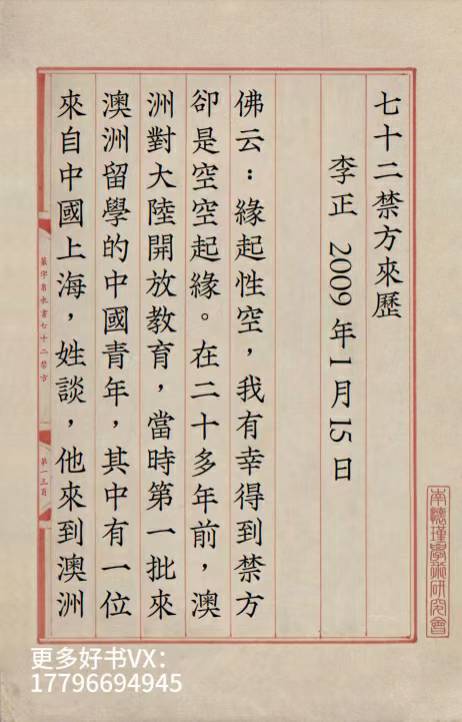 七十二禁方來歷
李正 2009年1月15日
佛云：緣起性空，我有幸得到禁方
卻是空空起緣。在二十多年前，澳
洲對大陸開放教育，當時第一批來
澳洲留學的中國青年，其中有一位
來自中國上海，姓談，他來到澳洲
七十二禁方
第一三頁
南懷瑾學術研究會
更多好书VX：
17796694945